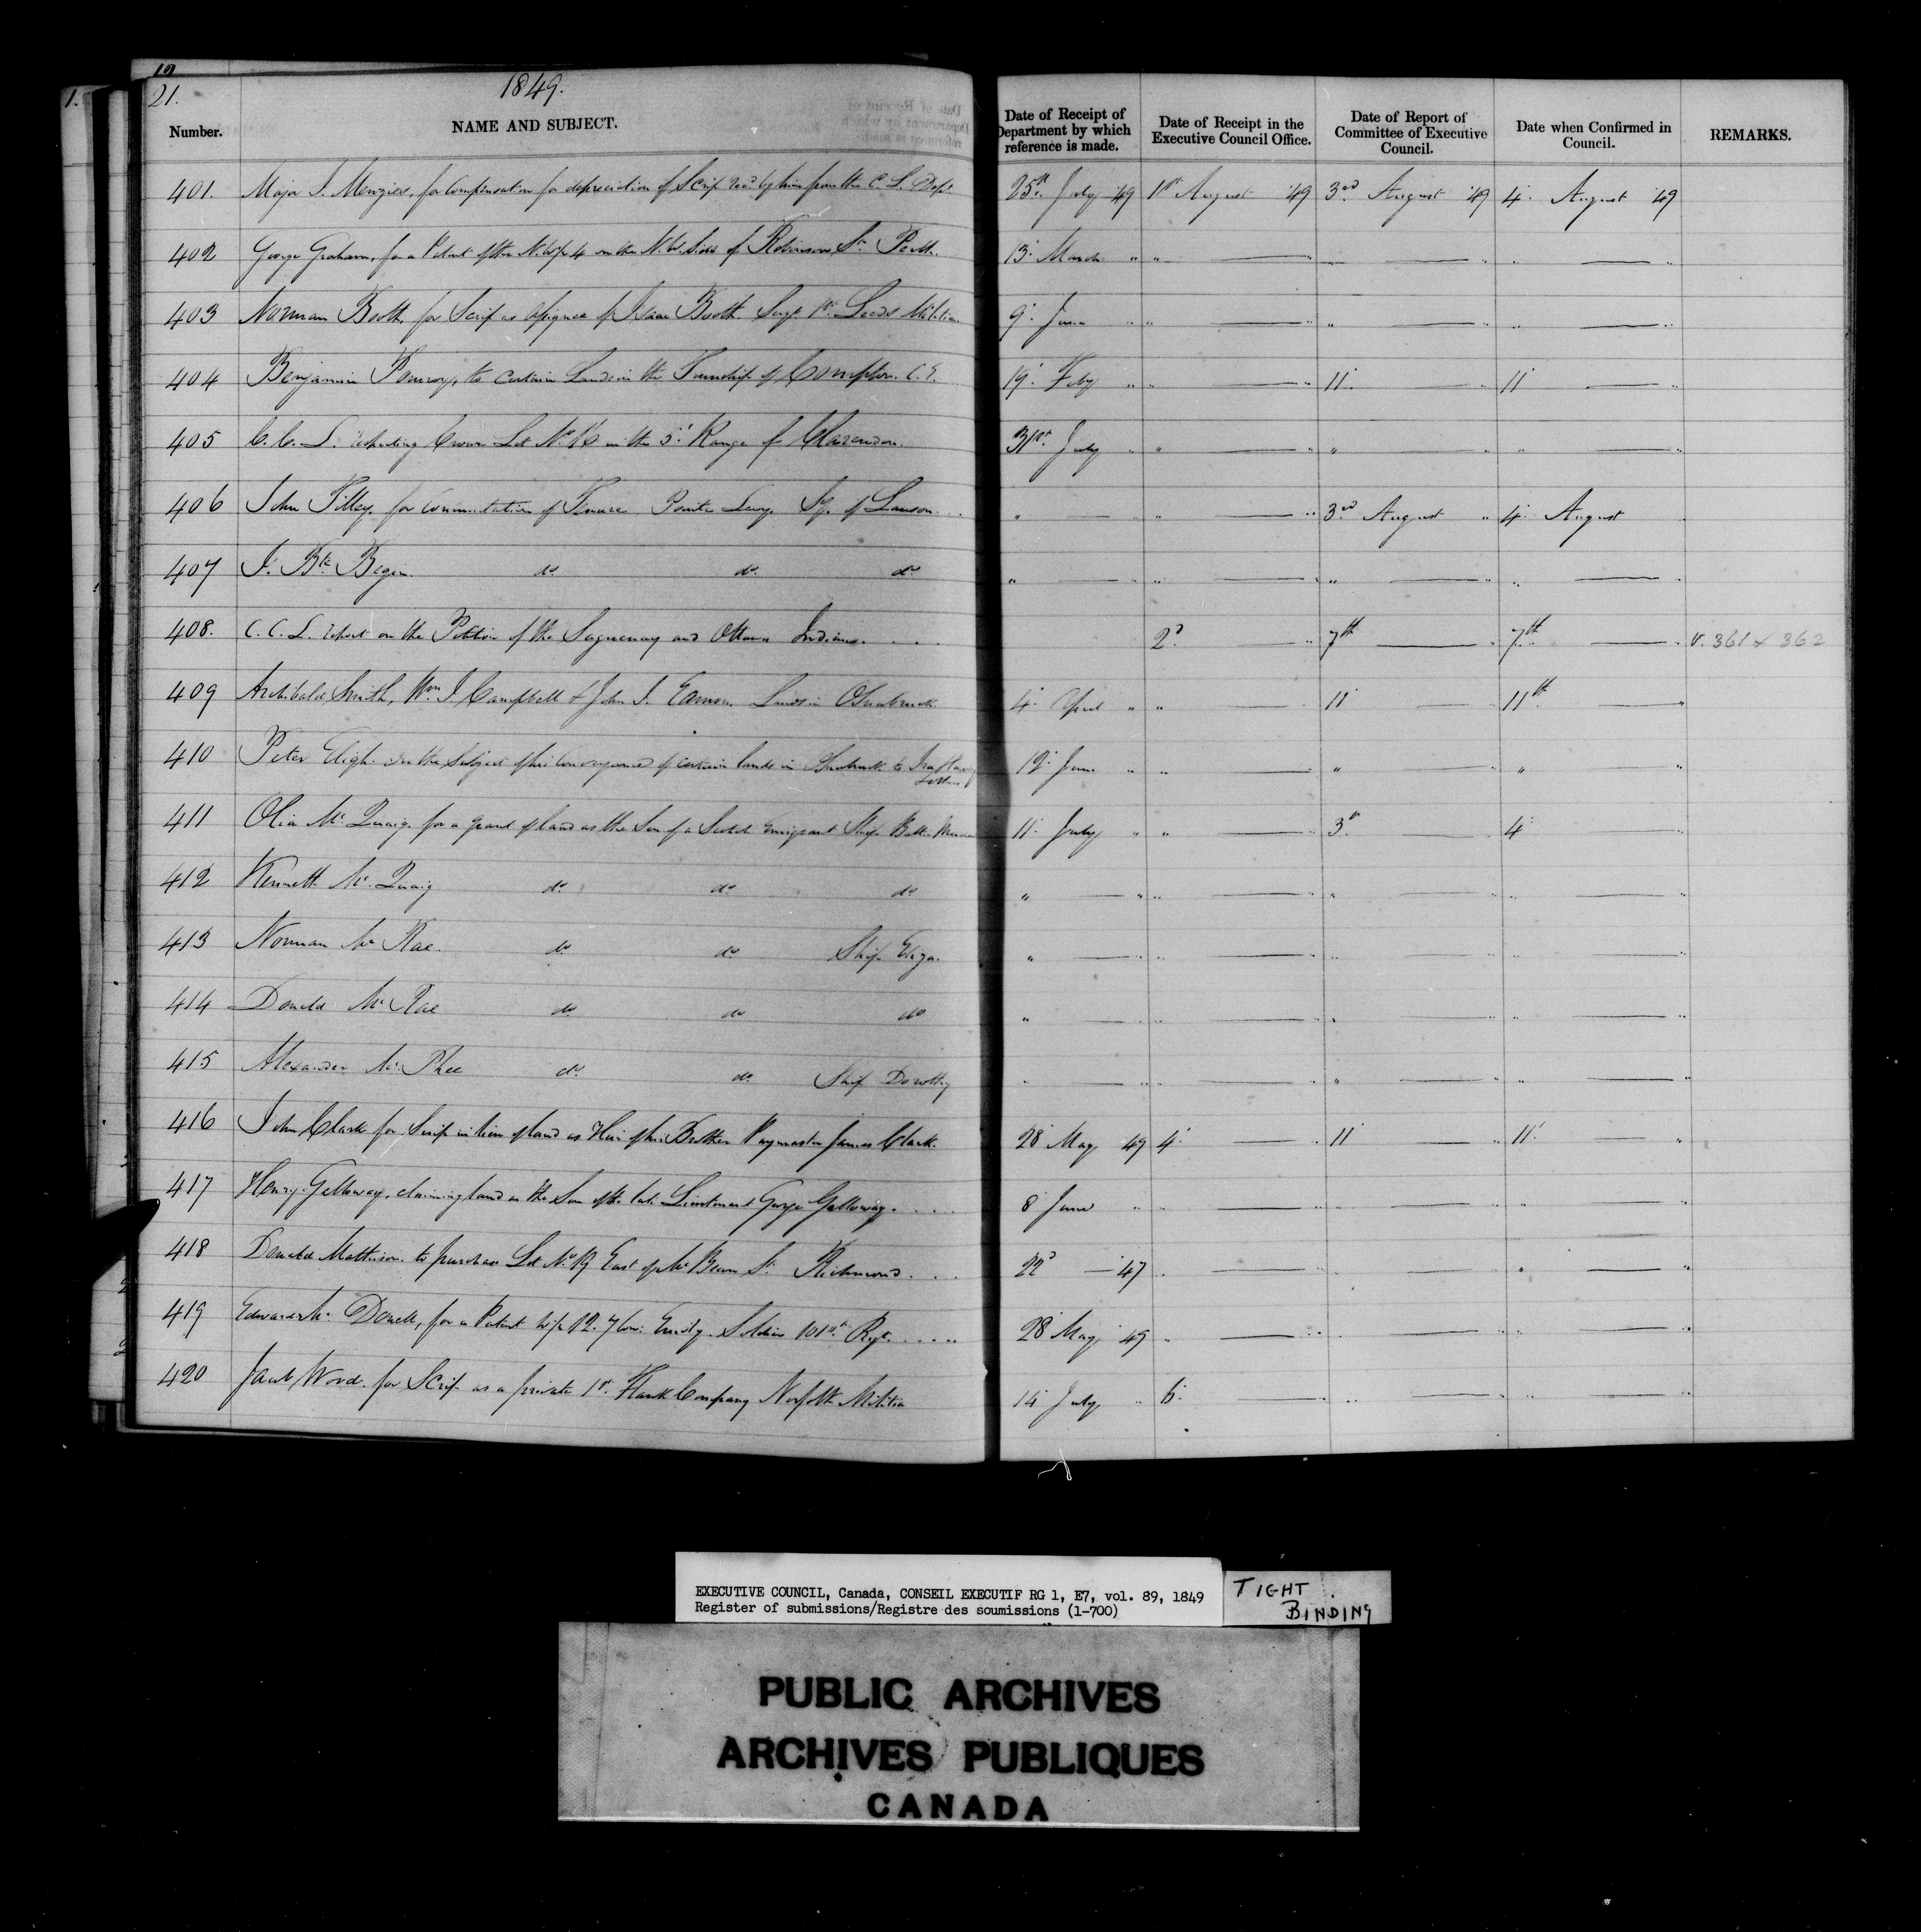 21.
1849.
Number. NAME AND SUBJECT. Date of Receipt of Department by which reference is made. Date of Receipt in the Executive Council Office. Date of Report of Committee of Executive Council. Date when Confirmed in Council. REMARKS.
401. Major J. Menzies, for Compensation for depreciation of Scrip rec'd by him from the C. L. Dept 25th July 49 1st August 49 3rd August 49 4. August 49
402 George Graham, for a Patent of the N. W. pt 4 on the N. W. Side of Robinson St. Perth. 13. March " " " "
403 Norman Booth, for Scrip as assignee of Isaac Booth Sergt. 1st Leeds Militia. 9. June " " " "
404 Benjamin Pomroy, to certain Lands in the Township of Compton. C. E. 19. Feby " " 11. 11
405 C. C. L. respecting Crown Lot No. 16 in the 5. Range of Clarendon. 31st July " " " "
406 John Tilley for Commutation of Tenure Pointe Levy Sy. of Lauson. " " 3rd August " 4. August
407 J. Bte Begin. do. do. do. " " " "
408. C. C. L. report on the Petition of the Saguenay and Ottawa Indians. 2d " 7th " 7th " V. 361 & 362
409 Archibald Smith, Wm J. Campbell & John I. Lands in Osnabruck 4. April " " 11 11th "
410 Peter Eligh. on the Subject of his Conveyance of certain lands in Osnabruck to 12. June " " " "
411 Olia Mc Quaig. for a grant of land as the Son of a Scotch Emigrant Ship 11. July " " 3d 4.
412 Kenneth Mc Quaig do. do. do. " " " "
413 Norman Mc Rae. do. do. Ship Eliza. " " " "
414 Donald Mc Rae do. do do " " " "
415 Alexander Mc Phee do. do. Ship Dorothy " " " "
416 John Clark for Scrip in lieu of land as Heir of his Brother Paymaster James Clark. 28 May 49 4. " 11 11. "
417 Henry Galloway, claiming land as the Son of the late Lieutenant George Galloway. 8 June " " " "
418 Donald Mattheson. to purchase Lot No. 19 East of Mc Bean St. Richmond. 22d — 47 " " "
419 Edward Mc Donell, for a Patent W. pt 12. 7 Con: Emily. Soldier 101st Regt. 28 May 49 " " "
420 Jacob Wood. for Scrip as a private 1st Flank Company Norfolk Militia 14 July " 6. " " "
EXECUTIVE COUNCIL, Canada, CONSEIL EXECUTIF RG 1, E7, vol. 89, 1849
Register of submissions/Registre des soumissions (1-700)
TIGHT
BINDING
PUBLIC ARCHIVES
ARCHIVES PUBLIQUES
CANADA